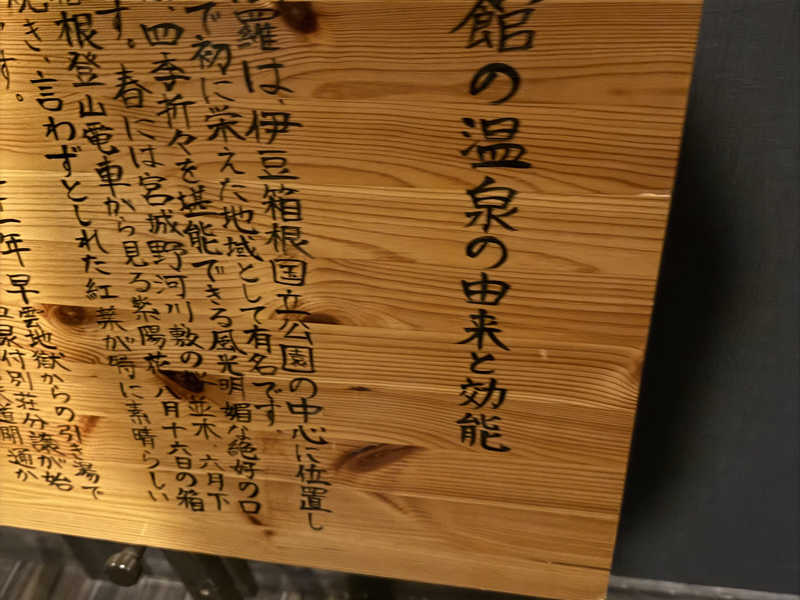 館の温泉の由来と効能
羅は、伊豆箱根国立公園の中心に位置し
で初に栄えた地域として有名です。
四季折々を堪能できる風光明媚な絶好のロ
す。春には宮城野河川敷の桜並木 六月下
根登山電車から見る紫陽花 八月十六日の箱
焼き、言わずとしれた紅葉が特に素晴らしい
す。
年 早雲地獄からの引き湯で
付別荘分譲が始
道開通か